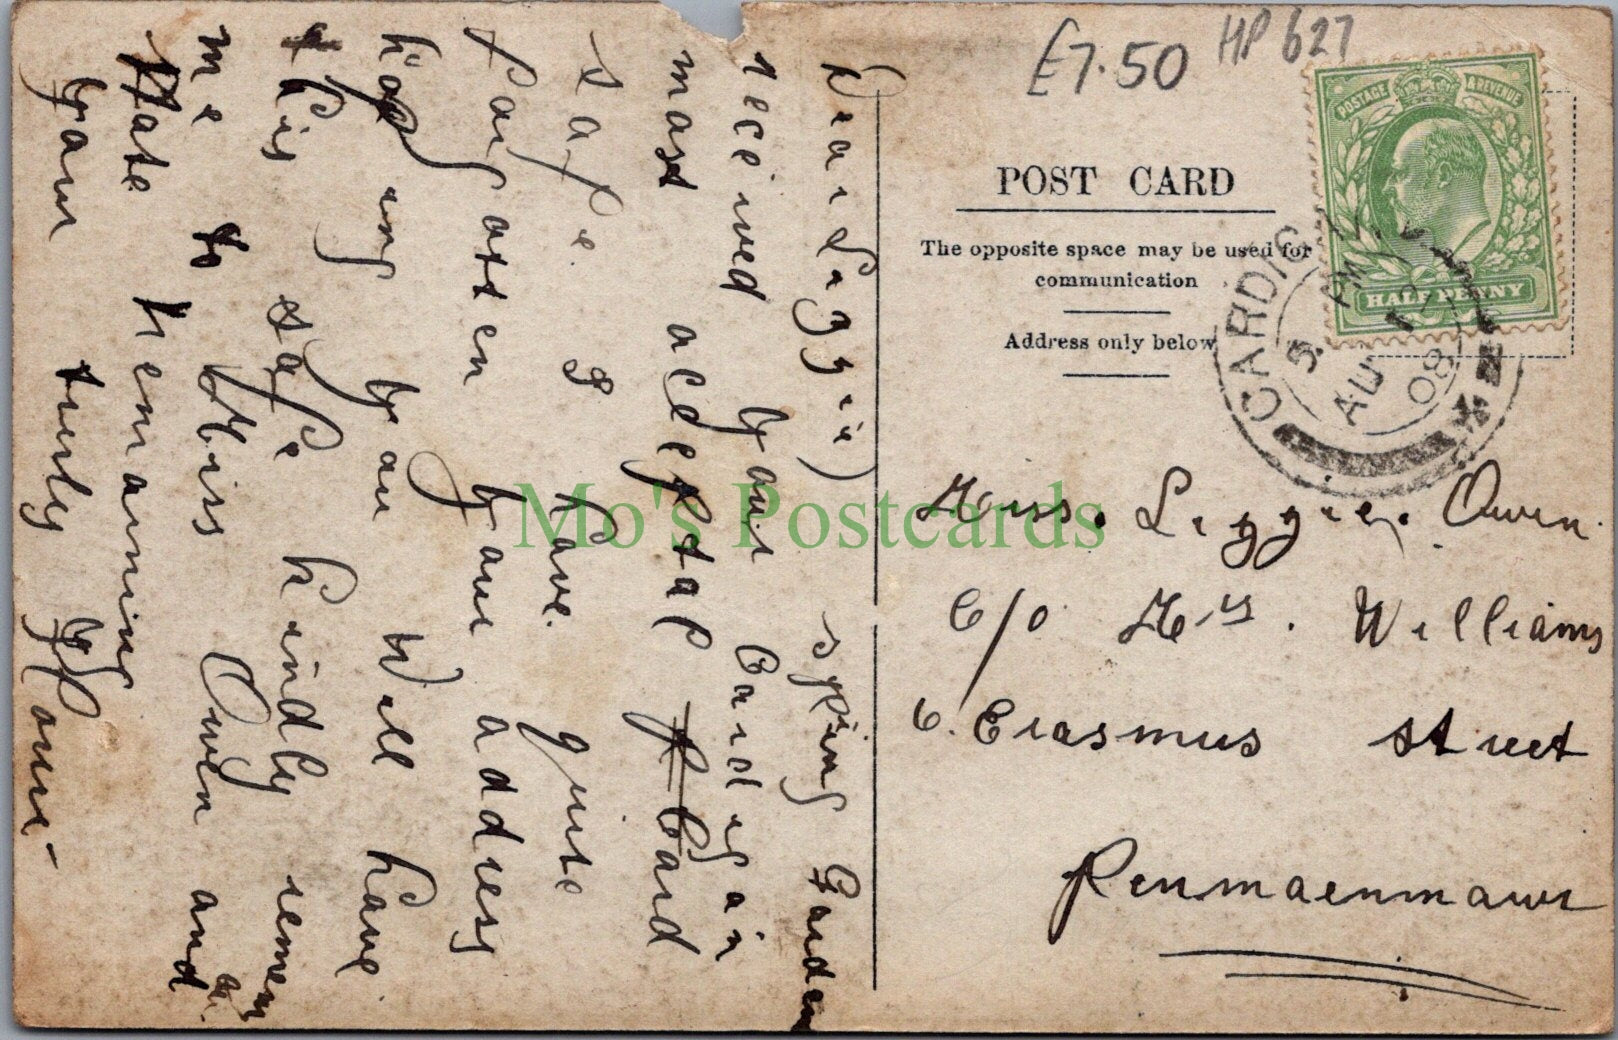 £7.50 HP 627
POSTAGE & REVENUE
HALFPENNY
POST CARD
The opposite space may be used for
communication
Address only below
CARDIGAN
5. PM
AU 12
08
Miss. Lizzie. Owen.
C/o Mrs. Williams
6. Erasmus street
Penmaenmawr
spring Garden
Cardigan
Dear Lizzie)
received your Card
most acceptap Card
safe. I have. quite
forgotten your address
hoping you will have
this safe kindly remem
me to Miss Owen and
Kate remaining
your turly
Mo's Postcards